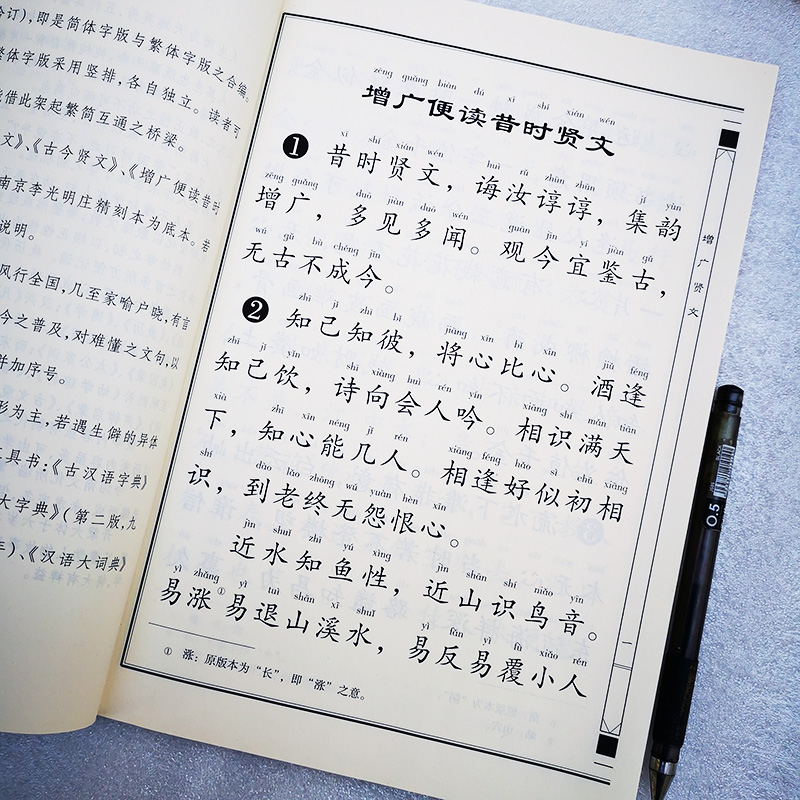 合订），即是简体字版与繁体字版之合编。
繁体字版采用竖排，各自独立。读者可
借此架起繁简互通之桥梁。
文》、《古今贤文》、《增广便读昔时
南京李光明庄精刻本为底本。若
说明。
风行全国，几至家喻户晓，有言
今之普及，对难懂之文句，以
并加序号。
形为主，若遇生僻的异体
工具书：《古汉语字典》
大字典》（第二版，九
》、《汉语大词典》
zēng guǎng biàn dú xī shí xián wén
增广便读昔时贤文
xī shí xián wén huì rǔ zhūn zhūn jí yùn
❶ 昔时贤文，诲汝谆谆，集韵
zēng guǎng duō jiàn duō wén guān jīn yí jiàn gǔ
增广，多见多闻。观今宜鉴古，
wú gǔ bù chéng jīn
无古不成今。
zhī jǐ zhī bǐ jiāng xīn bǐ xīn jiǔ féng
❷ 知己知彼，将心比心。酒逢
zhī jǐ yǐn shī xiàng huì rén yín xiāng shí mǎn tiān
知己饮，诗向会人吟。相识满天
xià zhī xīn néng jǐ rén xiāng féng hǎo sì chū xiāng
下，知心能几人。相逢好似初相
shí dào lǎo zhōng wú yuàn hèn xīn
识，到老终无怨恨心。
jìn shuǐ zhī yú xìng jìn shān shí niǎo yīn
近水知鱼性，近山识鸟音。
yì zhǎng yì tuì shān xī shuǐ yì fǎn yì fù xiǎo rén
易涨①易退山溪水，易反易覆小人
① 涨：原版本为“长”，即“涨”之意。
增广贤文
一
0.5